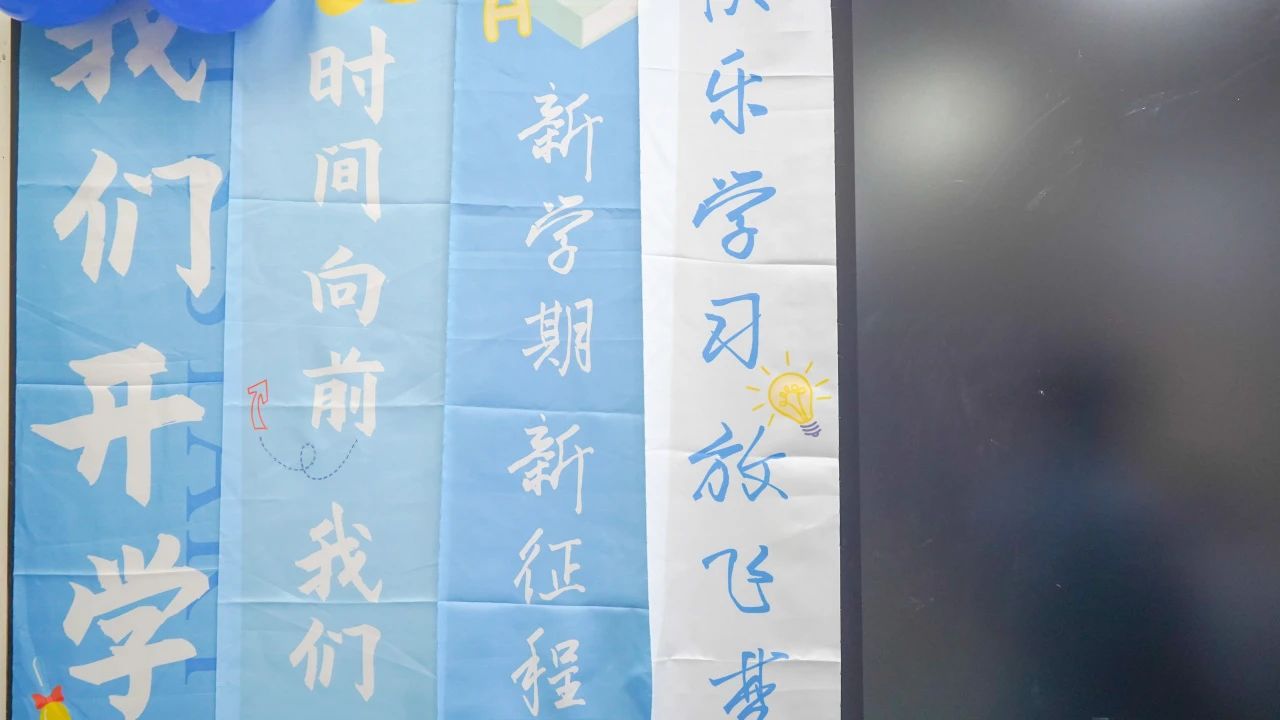 我们开学
时间向前 我们
新学期 新征程
快乐学习 放飞梦